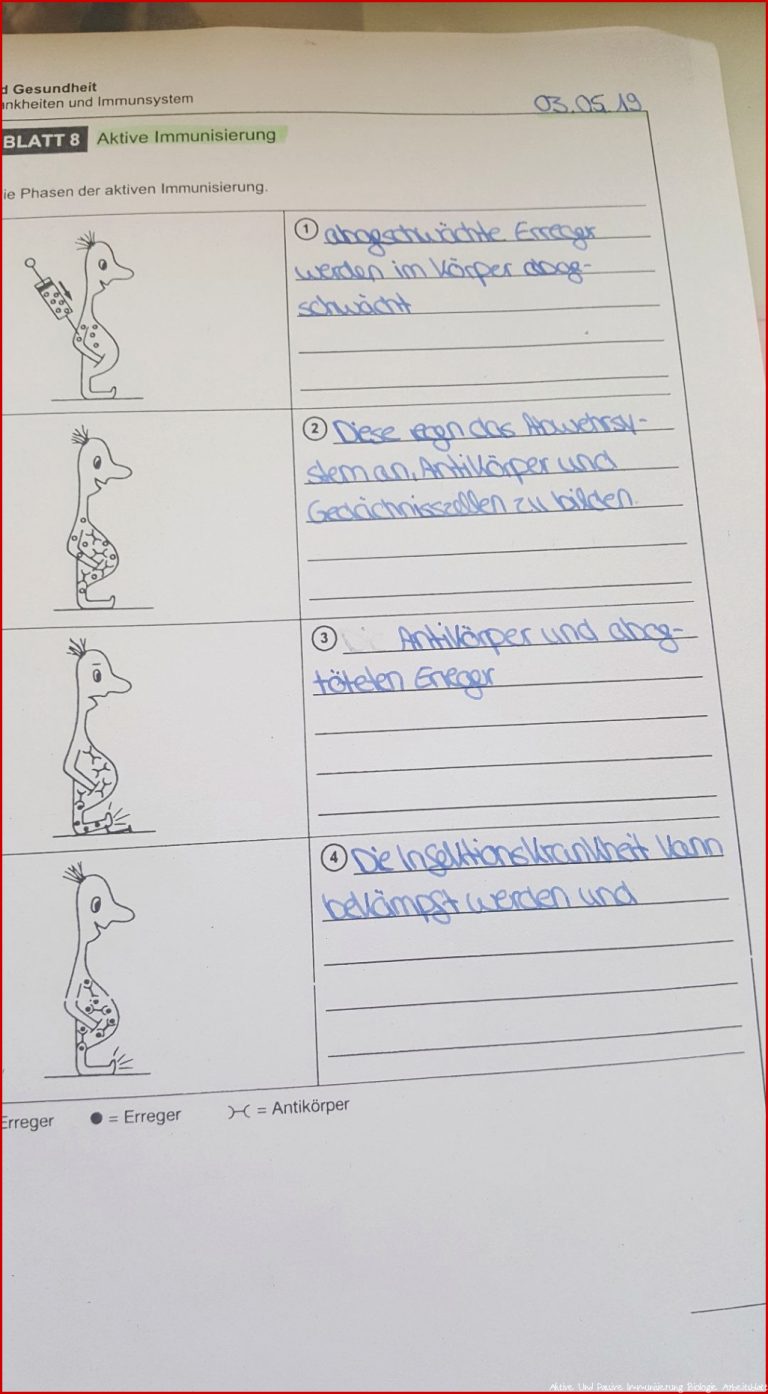 d Gesundheit
ankheiten und Immunsystem
03.05.19
BLATT 8 Aktive Immunisierung
ie Phasen der aktiven Immunisierung.
① abgeschwächte Erreger
werden im Körper abge-
schwächt
② Diese regn das Abwehrsy-
stem an, Antikörper und
Gedächniszellen zu bilden.
③ Antikörper und abge-
töteten Erreger
④ Die Infektionskrankheit kann
bekämpft werden und
Erreger ● = Erreger = Antikörper
Aktive Und Passive Immunisierung Biologie Arbeitsblatt